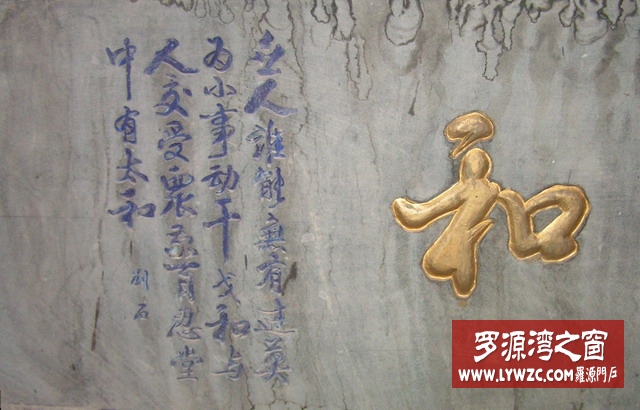 和
世人誰能無有过莫
为小事动干戈和与
人交受眾益百忍堂
中有太和
刘石
罗源湾之窗
WWW.LYWZC.COM 羅源門戶